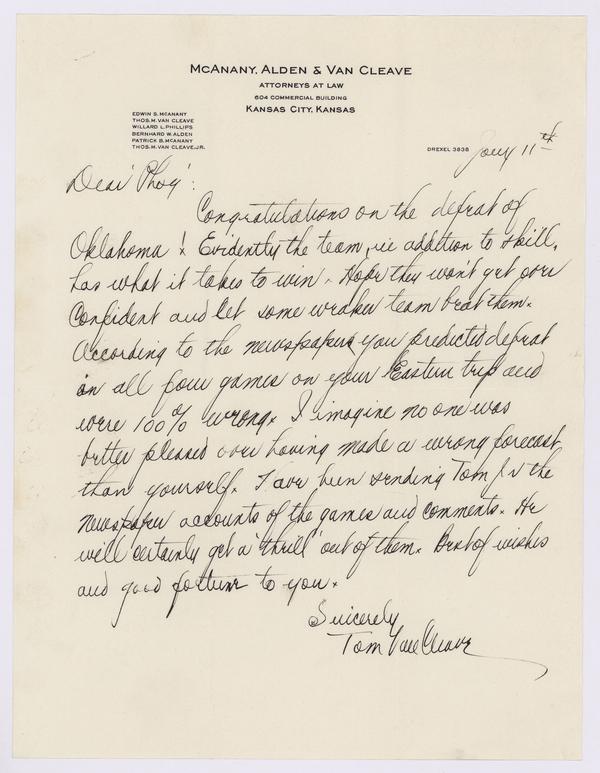 McAnany, Alden & Van Cleave
Attorneys at Law
604 Commercial Building
Kansas City, Kansas
Edwin S. McAnany
Thos. M. Van Cleave
Willard L. Phillips
Bernhard W. Alden
Patrick B. McAnany
Thos. M. Van Cleave, Jr.
Drexel 3838
Jany 11th
Dear 'Phog':
Congratulations on the defeat of
Oklahoma! Evidently the team, in addition to skill,
has what it takes to win. Hope they won't get over
confident and let some weaker team beat them.
According to the newspapers you predicted defeat
in all four games on your Eastern trip and
were 100% wrong. I imagine no one was
better pleased over having made a wrong forecast
than yourself. I have been sending Tom Jr the
newspaper accounts of the games and comments. He
will certainly get a 'thrill' out of them. Best of wishes
and good fortune to you.
Sincerely
Tom Van Cleave